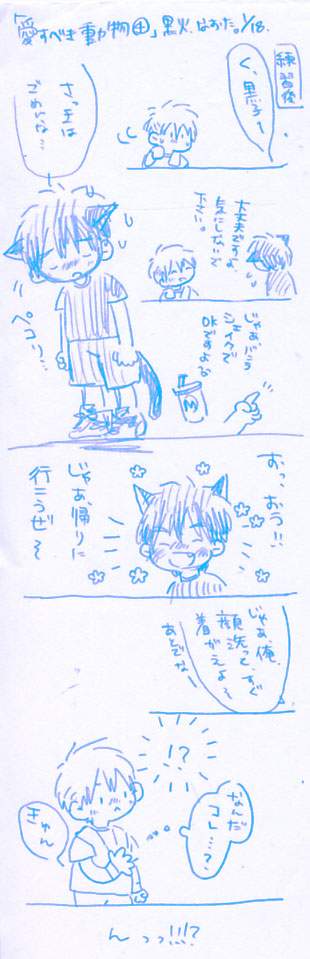 「愛すべき動物④」黒火.なおた。1/18.
練習後
く、黒子ー
さっきは
ごめんな…
ペコリ…
大丈夫ですよ、
気にしないで
下さい。
じゃあバニラ
シェイクで
OKですよ
M
おっ、おう!!
じゃあ、帰りに
行こうぜ〜
じゃあ、俺、
顔洗って、すぐ
着がえよ〜
あとでなー
!?
なんだ
コレ…?
きゅん
んっっ!!!?